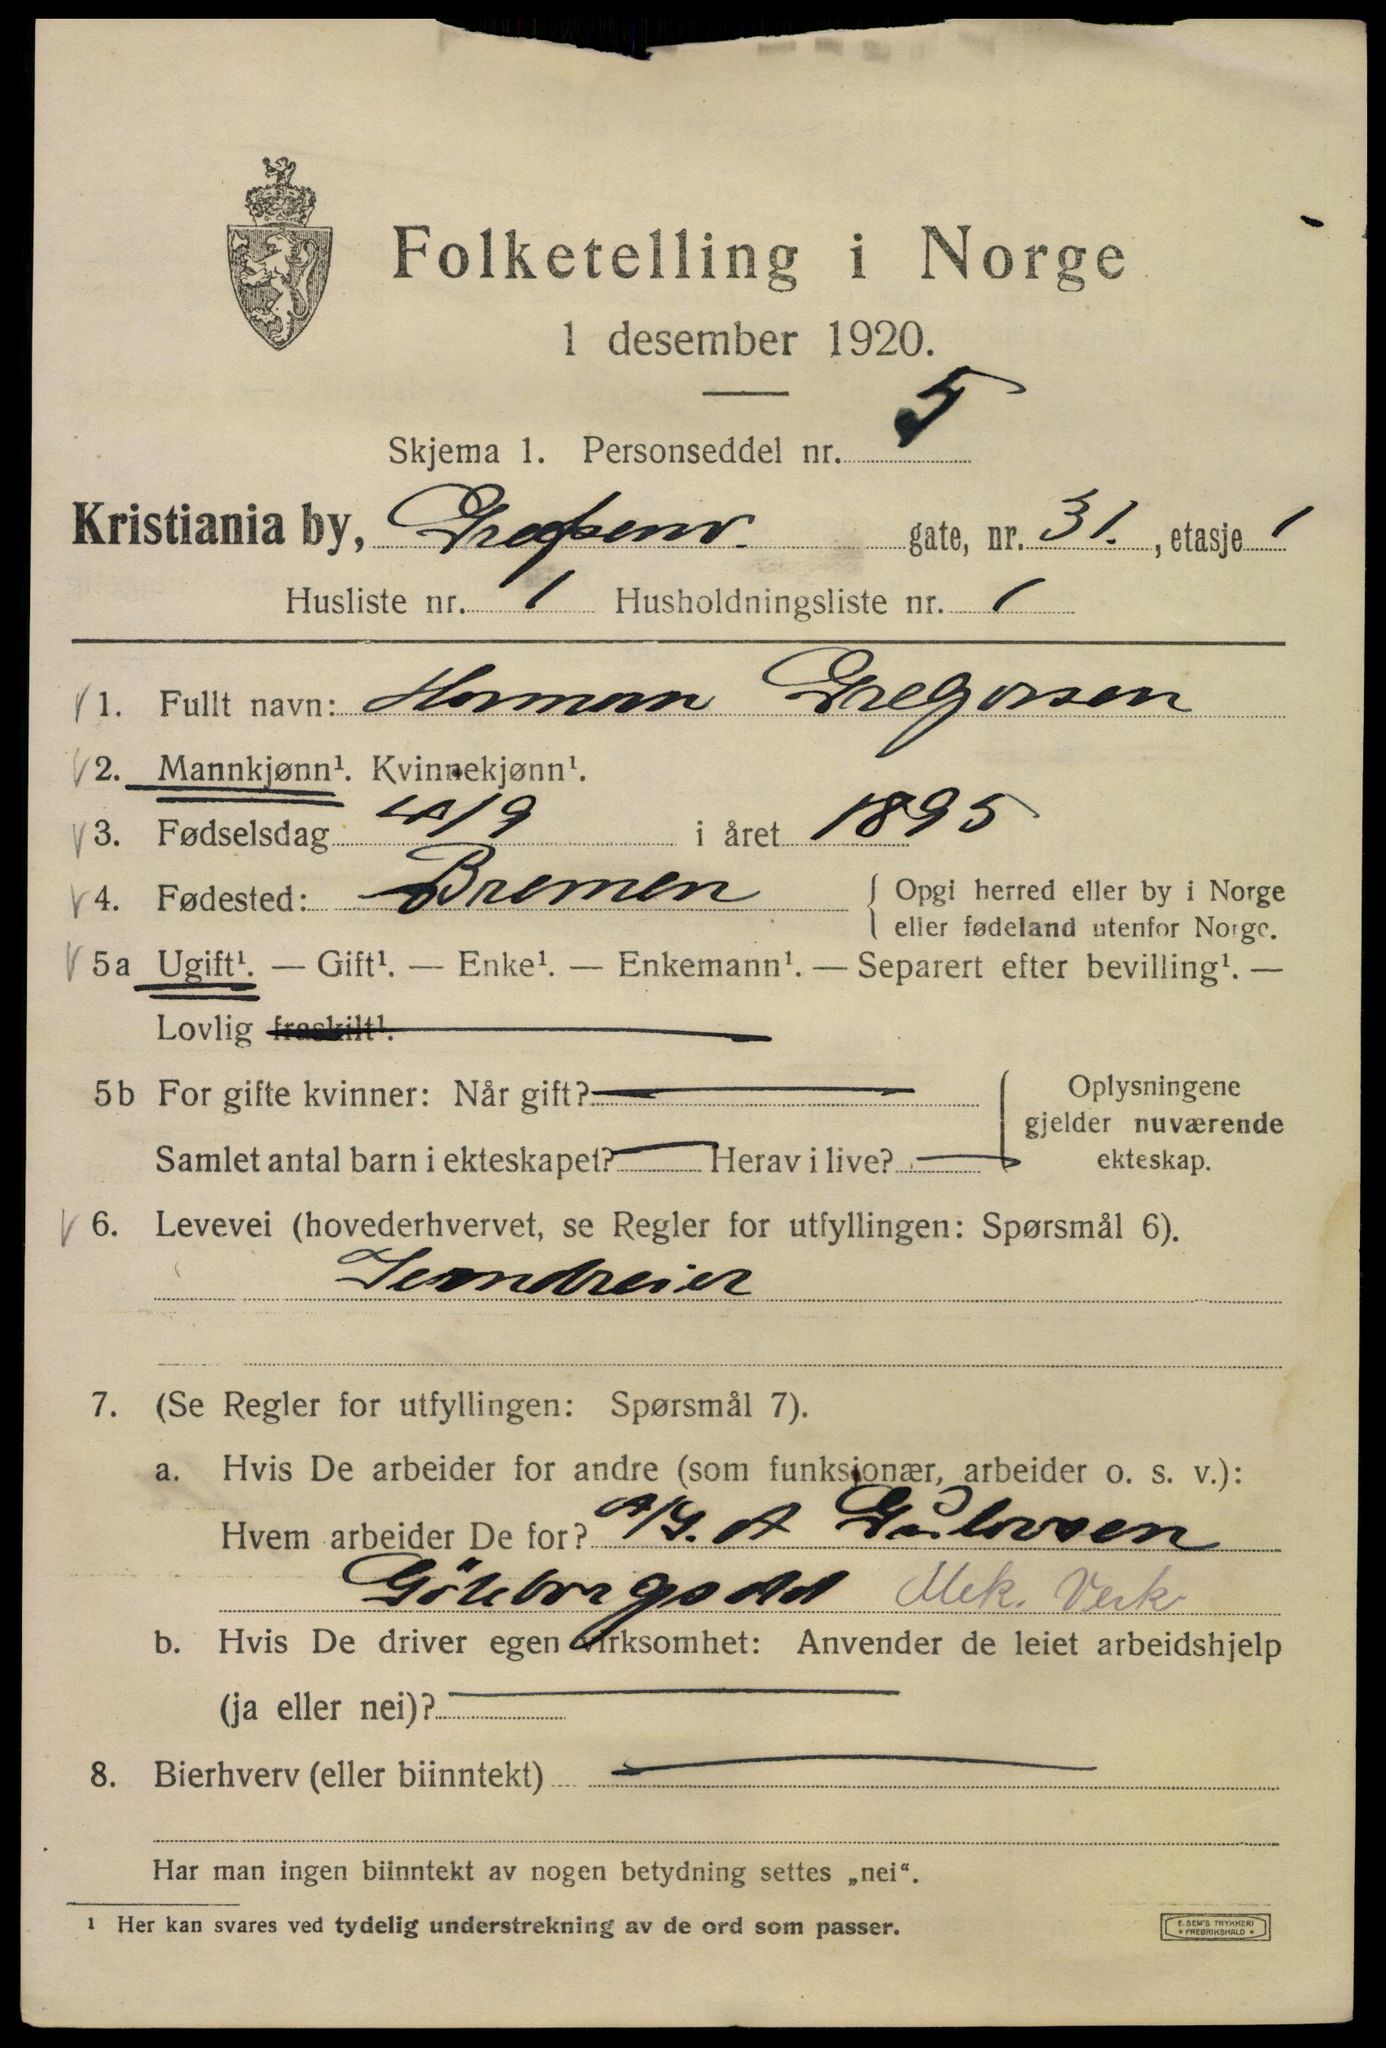 Folketelling i Norge
1 desember 1920.
Skjema 1. Personseddel nr. 5
Kristiania by, Grefsenv. gate, nr. 31., etasje 1
Husliste nr. 1 Husholdningsliste nr. 1
1. Fullt navn: Herman Gregersen
2. Mannkjønn¹. Kvinnekjønn¹.
3. Fødselsdag 4/9 i året 1895
4. Fødested: Bremen { Opgi herred eller by i Norge
eller fødeland utenfor Norge.
5a Ugift¹. — Gift¹. — Enke¹. — Enkemann¹. — Separert efter bevilling¹. —
Lovlig fraskilt¹.
5b For gifte kvinner: Når gift? { Oplysningene
gjelder nuværende
Samlet antal barn i ekteskapet? Herav i live? ekteskap.
6. Levevei (hovederhvervet, se Regler for utfyllingen: Spørsmål 6).
Jerndreier
7. (Se Regler for utfyllingen: Spørsmål 7).
a. Hvis De arbeider for andre (som funksjonær, arbeider o. s. v.):
Hvem arbeider De for? A/S. A Gulowsen
Göteborgsdd Mek. Verk
b. Hvis De driver egen virksomhet: Anvender de leiet arbeidshjelp
(ja eller nei)?
8. Bierhverv (eller biinntekt)
Har man ingen biinntekt av nogen betydning settes „nei“.
¹ Her kan svares ved tydelig understrekning av de ord som passer.
E. SEM'S TRYKKERI
* FREDRIKSHALD *